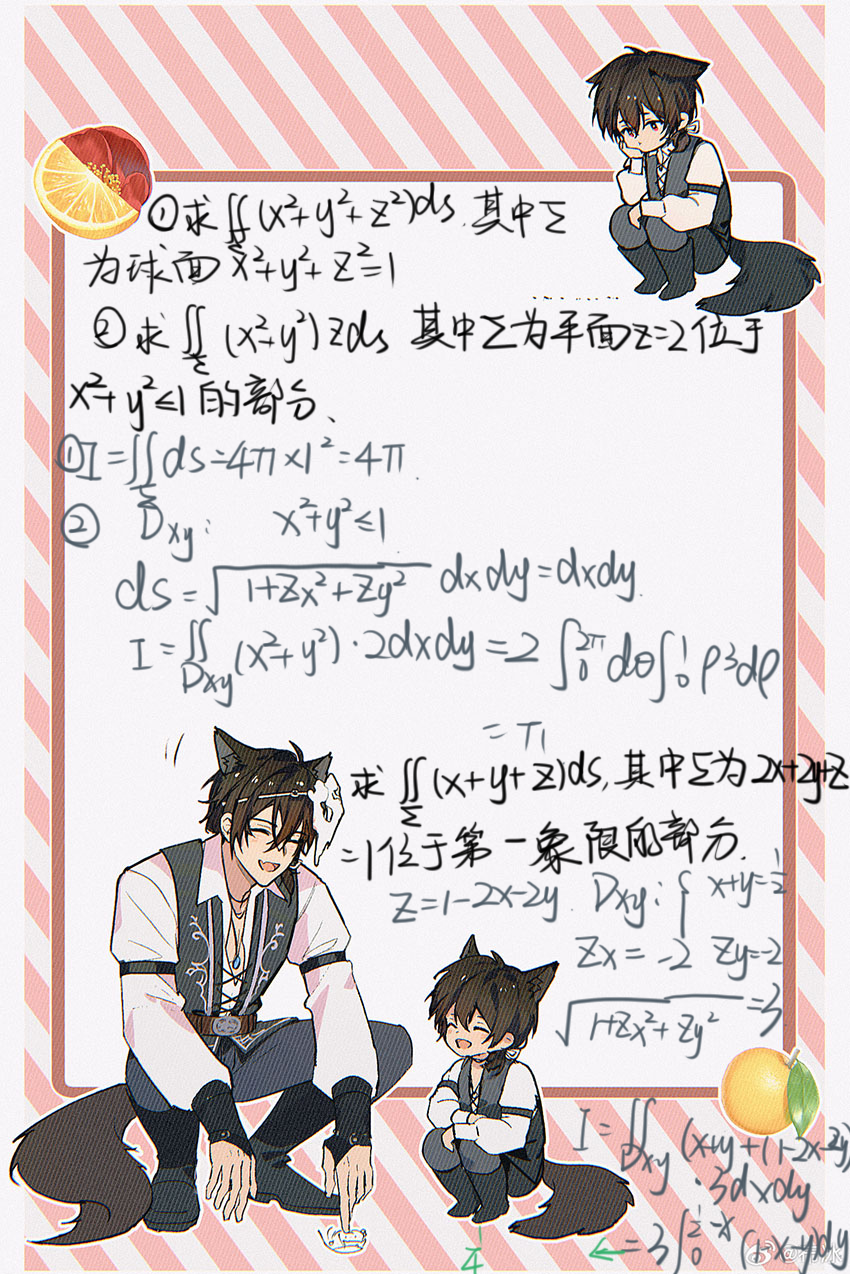 ①求∬(x²+y²+z²)ds,其中Σ
Σ
为球面x²+y²+z²=1
②求∬(x²+y²)zds 其中Σ为平面z=2位于
Σ
x²+y²≤1的部分、
①I=∬ds=4π×1²=4π.
Σ
② Dxy: x²+y²≤1
ds=√1+Zx²+Zy² dxdy=dxdy.
I=∬(x²+y²)·2dxdy=2∫₀²π dθ∫₀¹ρ³dρ
Dxy
=π
求∬(x+y+z)ds,其中Σ为2x+2y+z
Σ
=1位于第一象限的部分.
z=1-2x-2y. Dxy:{ x+y=1/2
Zx=-2 Zy=-2
√1+Zx²+Zy² =3
I=∬(x+y+(1-2x-2y)
Dxy
·3dxdy
1/4 ←=3∫₀^(1/2-x)(1-x-y)dy